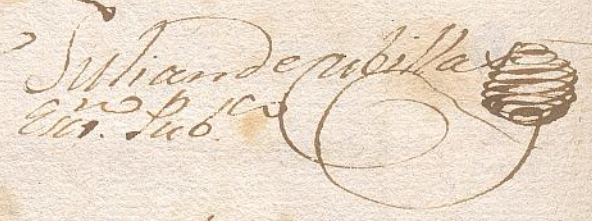 Julian de rubillas
Esno. Pubco